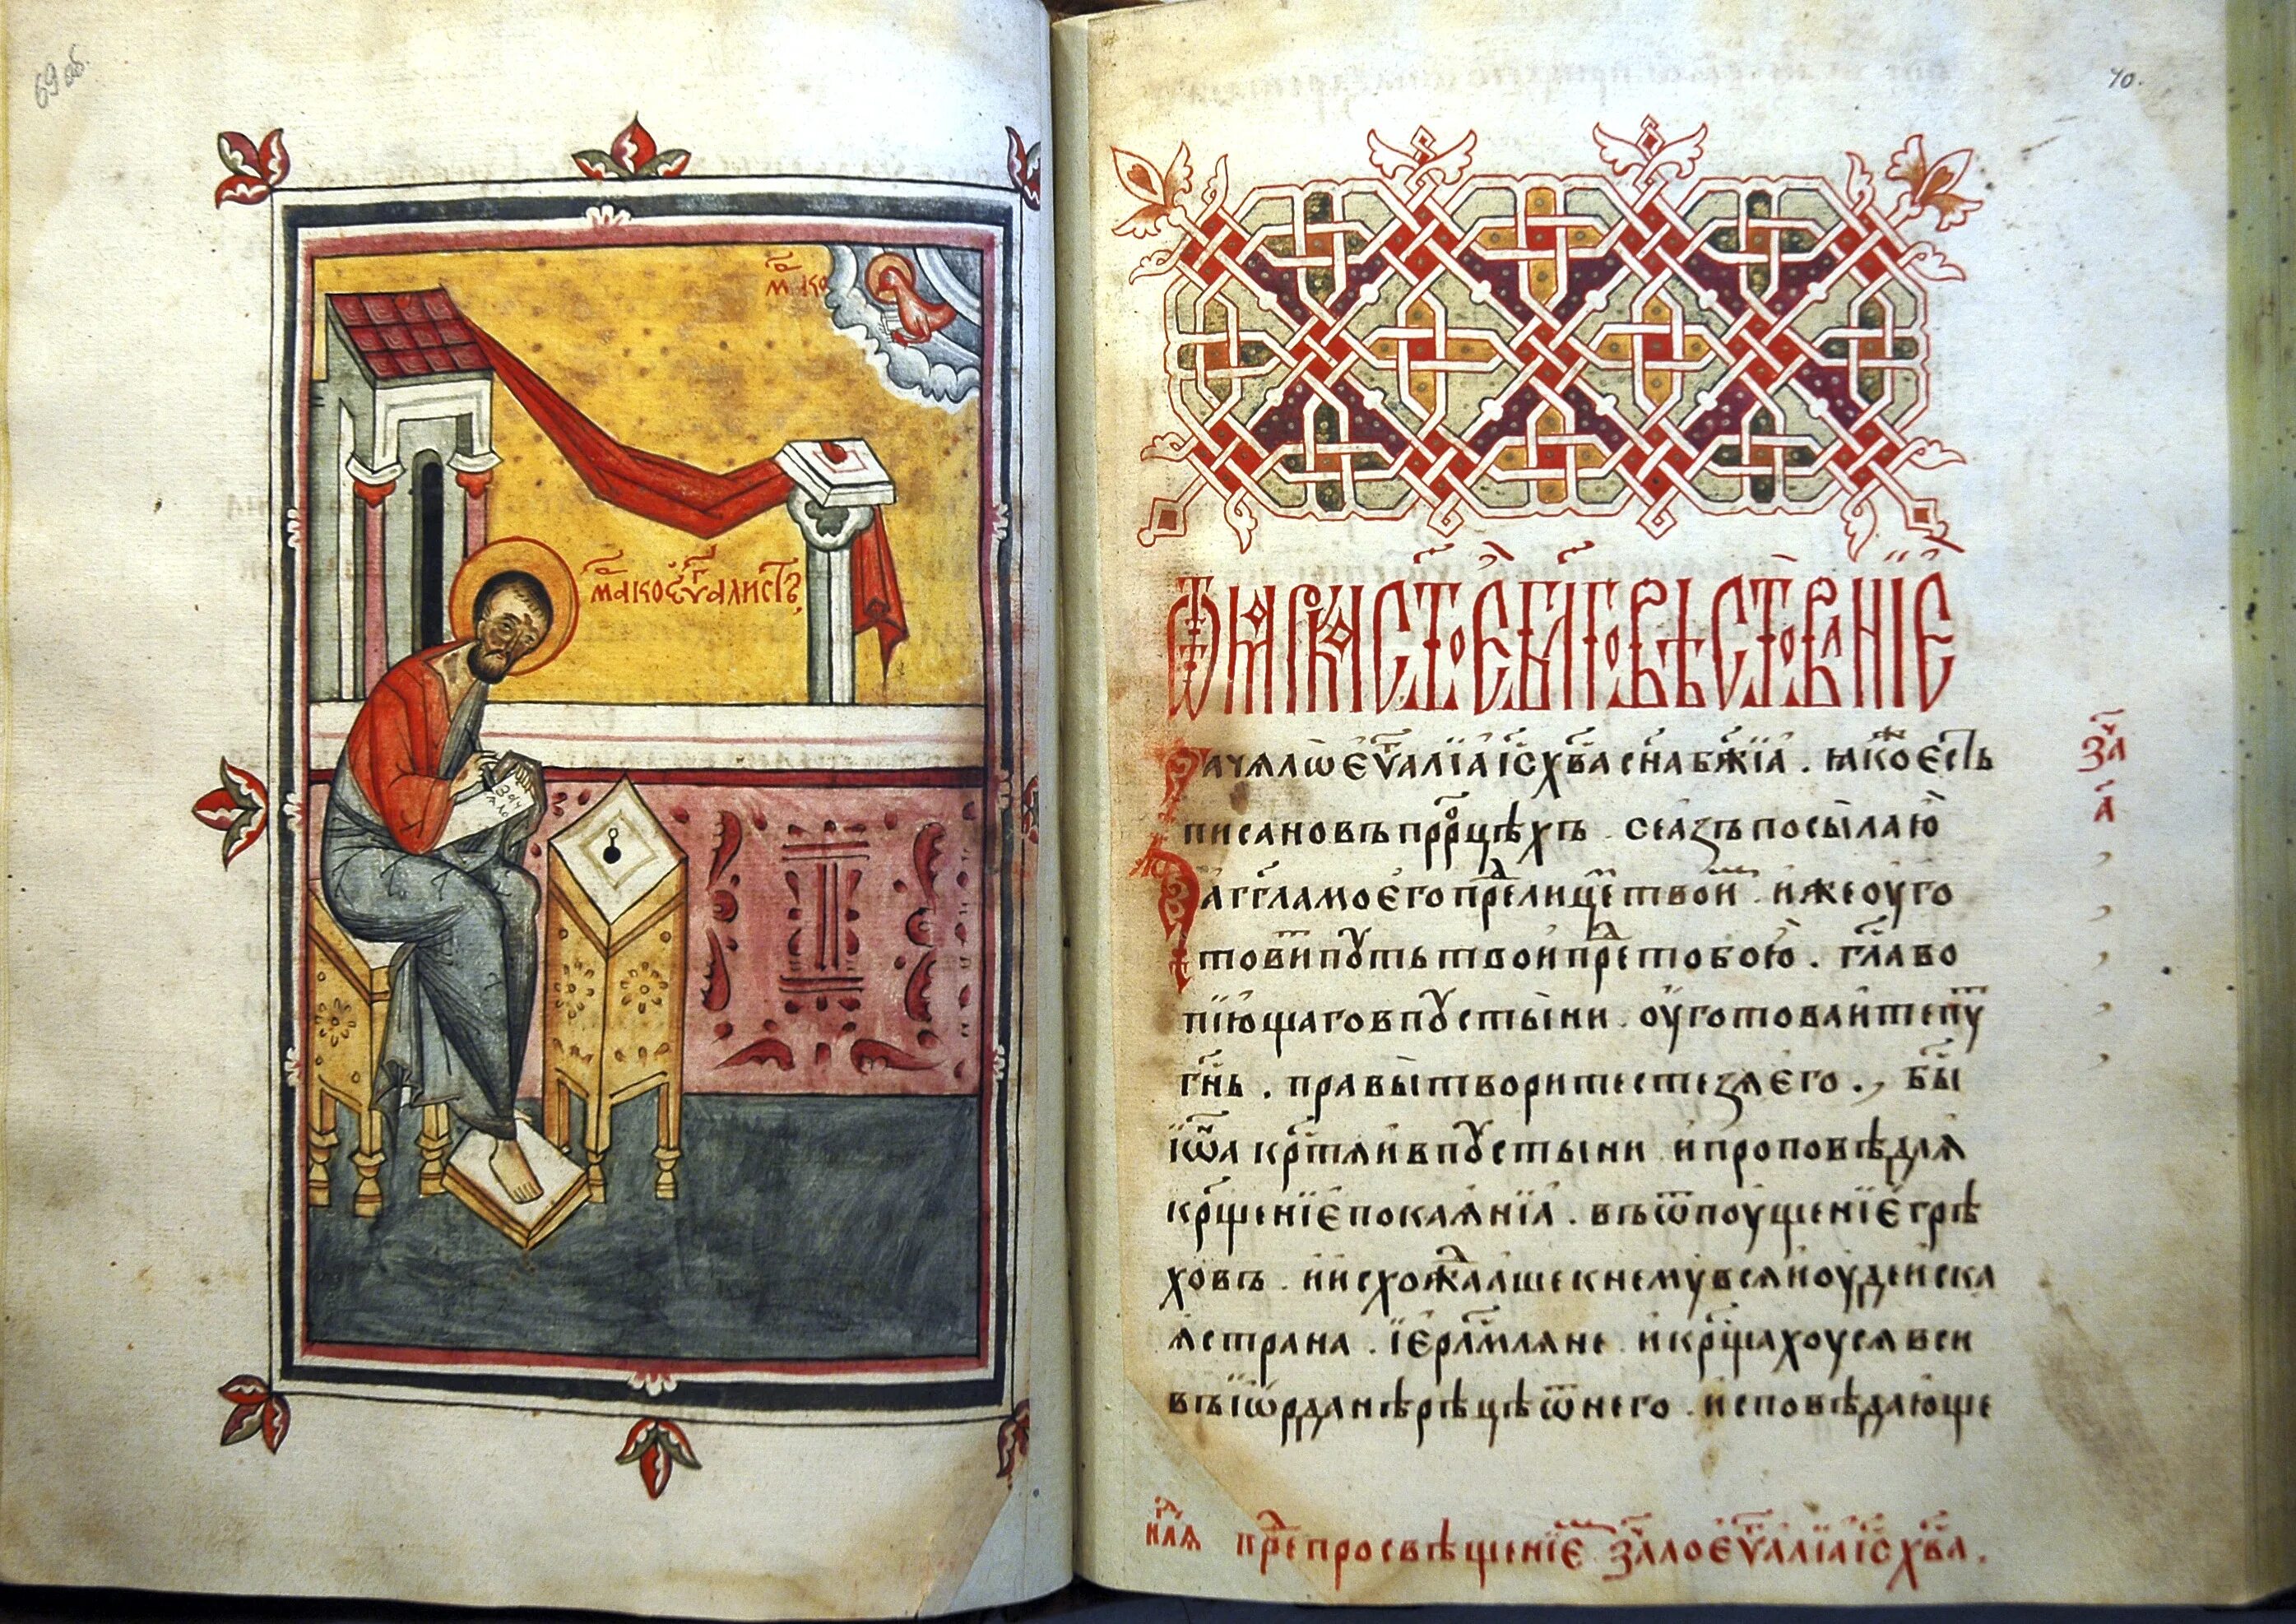 69 об.
м҃ако
м҃ако є҆у҃алистъ
зач ало
70.
Ѿ марка ст҃ое бл҃говѣствованїе
Зачало є҆ѵ҃алїа і҆с х҃ва сн҃а бж҃їа . ꙗ҆коже є҆сть
писано въ прр҃оцѣхъ . се азъ посылаю
а҆гг҃ла моє҆го пред лицемъ твоим . иже оуго
товит пꙋть твои пред тобою . гл҃а во
пїющаго в пꙋстыни . оуготоваите пу
г҃нь . правы творите стезѧ є҆го . бы
їѡ҃а крⷭ҇тѧи в пꙋстыни и проповѣдаѧ
кр҃щенїє покаѧнїа . въ ѿпоущенїє грѣ
ховъ . и исхождааше к нему всѧ иоудеиска
ѧ страна . їєрⷭ҇лмлѧне и кр҃щахоусѧ вси
въ їѡрдан҆ѣ рѣцѣ ѿ него . исповѣдающе
за҃ч
а҃
нлѧ пред просвѣщенїєм за҃ло є҆ѵ҃алїа і҆с х҃ва .